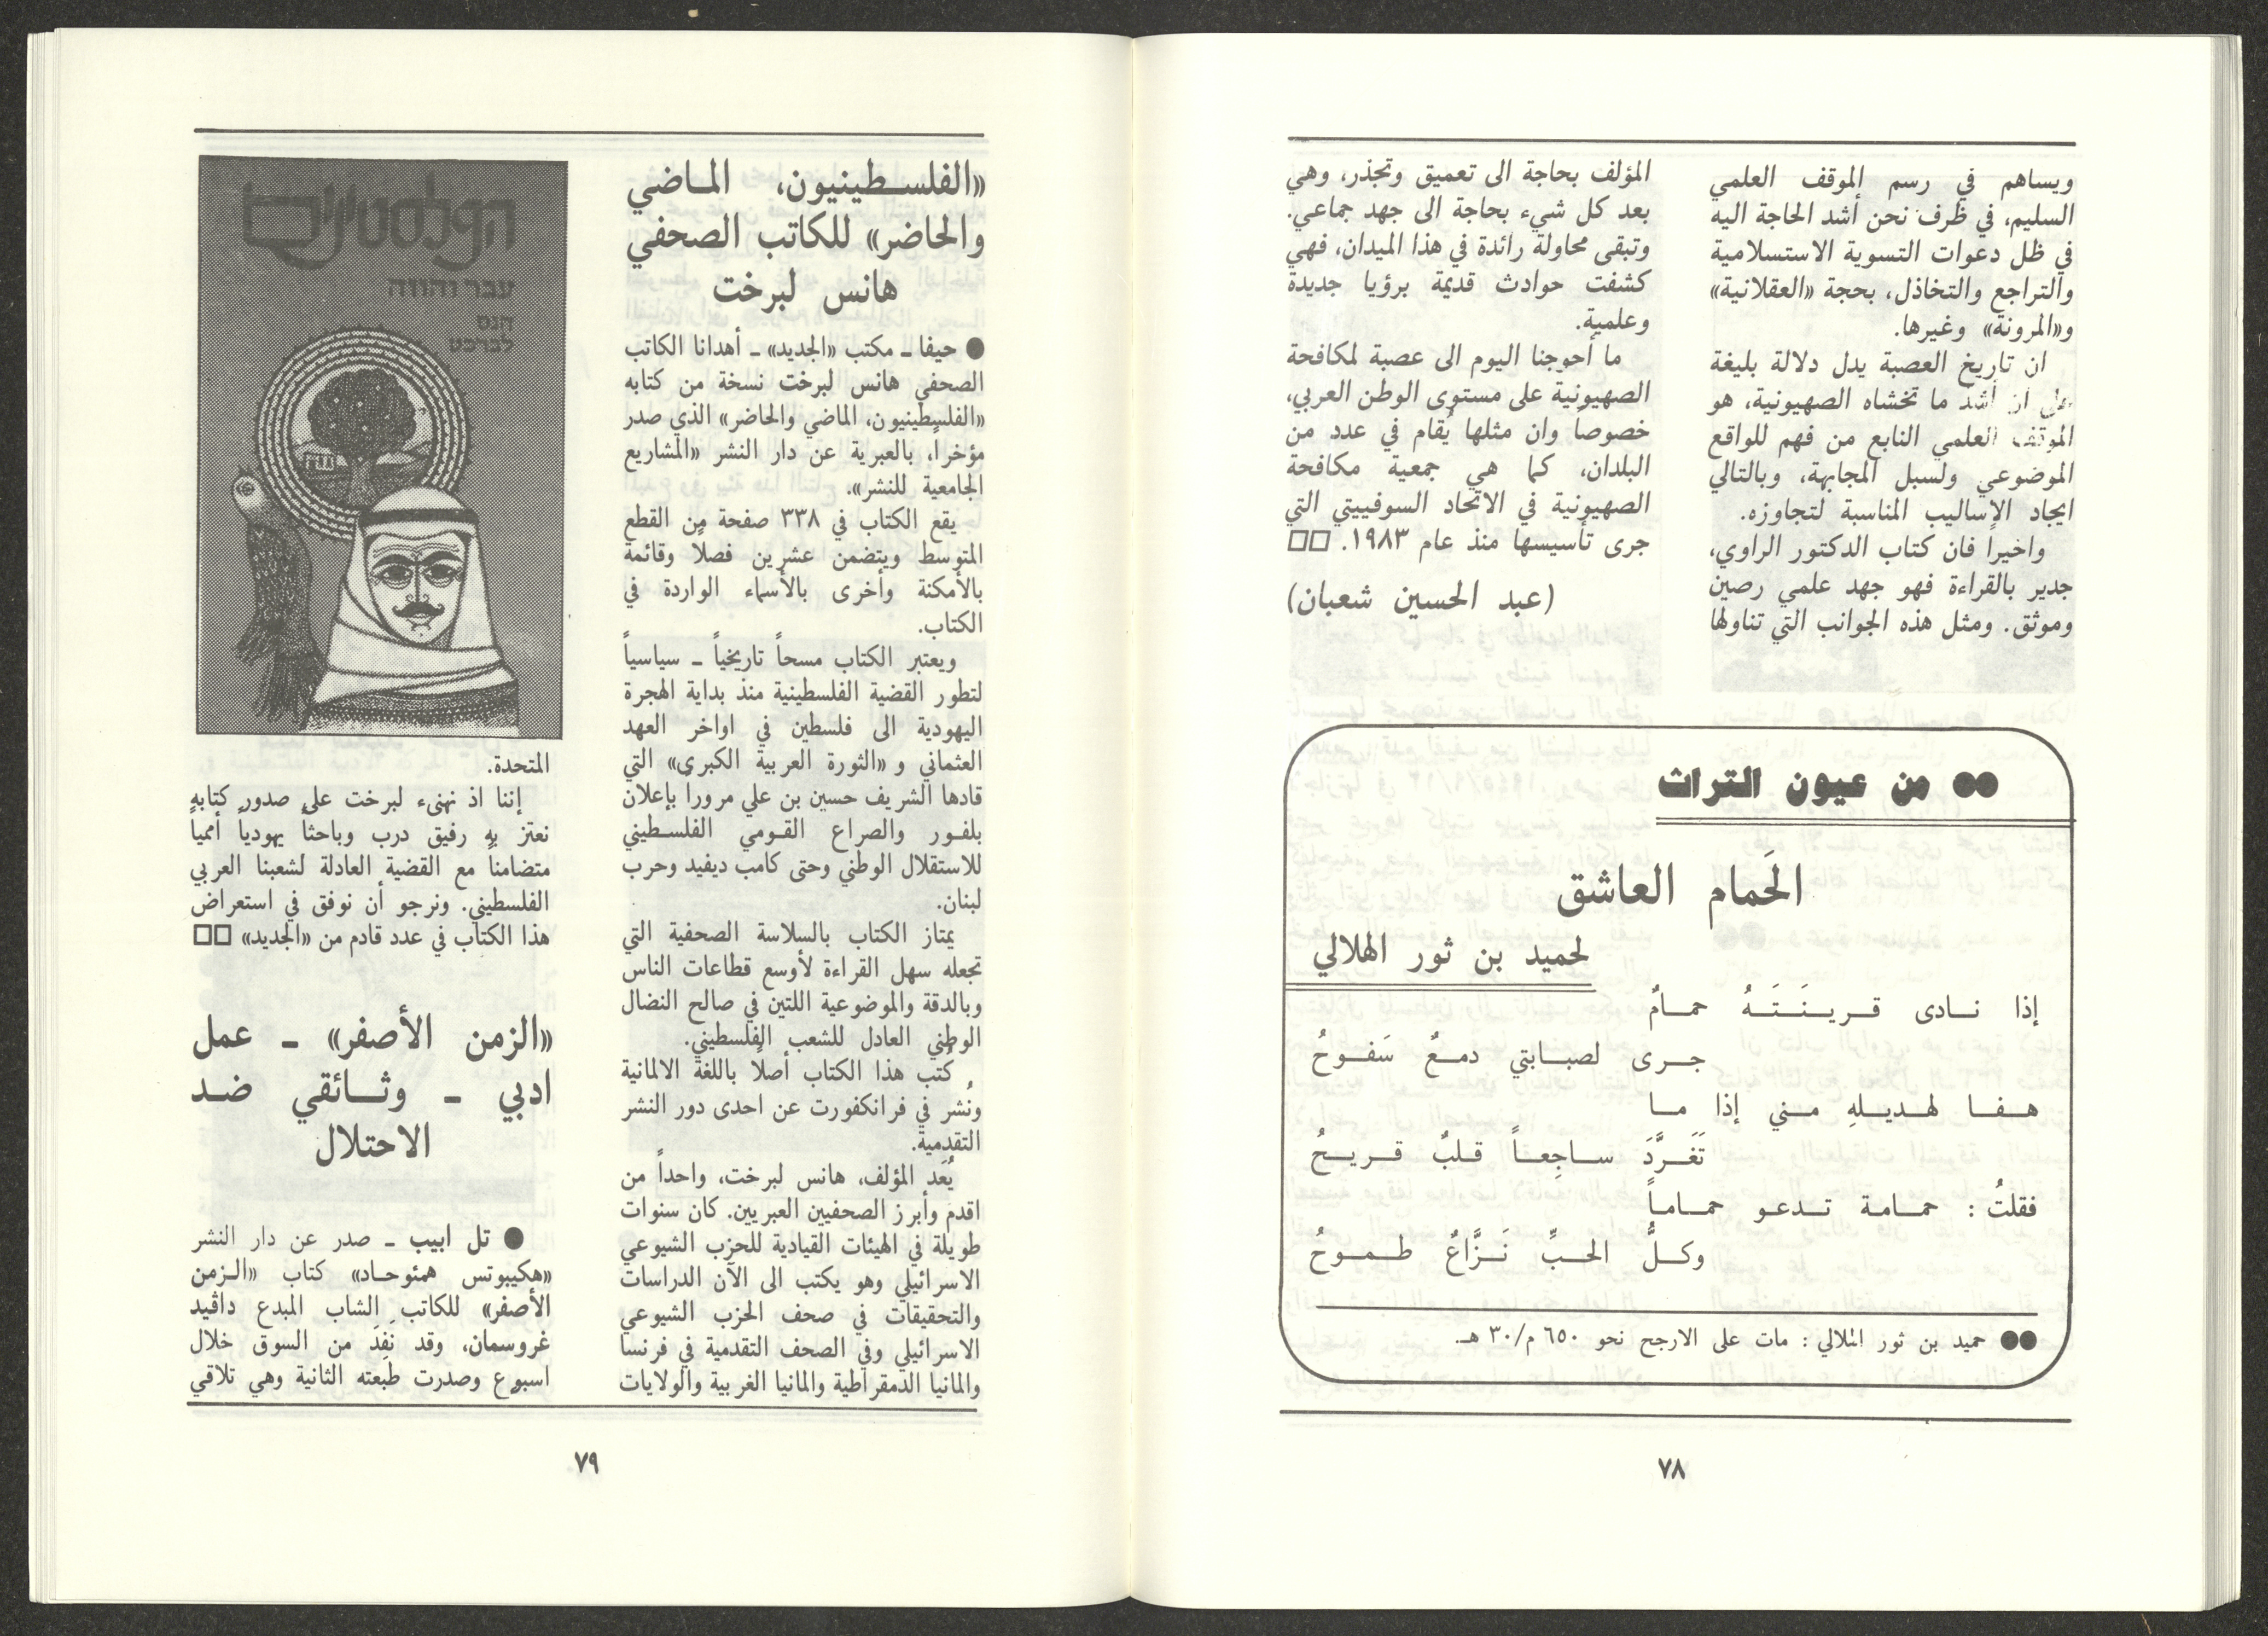 ويساهم في رسم الموقف العلمي
السليم، في ظرف نحن أشد الحاجة اليه
في ظل دعوات التسوية الاستسلامية
والتراجع والتخاذل، بحجة «العقلانية»
و«المرونة» وغيرها.
ان تاريخ العصبة يدل دلالة بليغة
على ان أشد ما تخشاه الصهيونية، هو
الموقف العلمي النابع من فهم للواقع
الموضوعي ولسبل المجابهة، وبالتالي
ايجاد الاساليب المناسبة لتجاوزه.
واخيرا فان كتاب الدكتور الراوي،
جدير بالقراءة فهو جهد علمي رصين
وموثق. ومثل هذه الجوانب التي تناولها
المؤلف بحاجة الى تعميق وتجذر، وهي
بعد كل شيء بحاجة الى جهد جماعي.
وتبقى محاولة رائدة في هذا الميدان، فهي
كشفت حوادث قديمة برؤيا جديدة
وعلمية.
ما أحوجنا اليوم الى عصبة لمكافحة
الصهيونية على مستوى الوطن العربي،
خصوصاً وان مثلها يُقام في عدد من
البلدان، كما هي جمعية مكافحة
الصهيونية في الاتحاد السوفييتي التي
جرى تأسيسها منذ عام ١٩٨٣. □□
(عبد الحسين شعبان)
●● من عيون التراث
الحَمام العاشق
لحميد بن ثور الهلالي
إذا نـادى قـريـنَـتَـهُ حمـامٌ
جـرى لصبـابتي دمـعٌ سَفـوحُ
هـفـا لهـديـلهِ مـني إذا مـا
تَغَـرَّدَ سـاجِعـاً قـلبٌ قـريـحُ
فقلتُ : حمـامة تـدعـو حمـامـاً
وكـلُّ الحـبِّ نَـزَّاعٌ طـمـوحُ
●● حميد بن ثور الهلالي : مات على الارجح نحو ٦٥٠ م/٣٠ هـ.
٧٨
«الفلسـطينيون، المـاضي
والحاضر» للكاتب الصحفي
هانس لبرخت
● حيفا ـ مكتب «الجديد» ـ أهدانا الكاتب
الصحفي هانس لبرخت نسخة من كتابه
«الفلسطينيون، الماضي والحاضر» الذي صدر
مؤخراً، بالعبرية عن دار النشر «المشاريع
الجامعية للنشر».
يقع الكتاب في ٣٣٨ صفحة من القطع
المتوسط ويتضمن عشرين فصلًا وقائمة
بالأمكنة وأخرى بالأسماء الواردة في
الكتاب.
ويعتبر الكتاب مسحاً تاريخياً ـ سياسياً
لتطور القضية الفلسطينية منذ بداية الهجرة
اليهودية الى فلسطين في اواخر العهد
العثماني و «الثورة العربية الكبرى» التي
قادها الشريف حسين بن علي مروراً بإعلان
بلفـور والصراع القـومي الفلسـطيني
للاستقلال الوطني وحتى كامب ديفيد وحرب
لبنان.
يمتاز الكتاب بالسلاسة الصحفية التي
تجعله سهل القراءة لأوسع قطاعات الناس
وبالدقة والموضوعية اللتين في صالح النضال
الوطني العادل للشعب الفلسطيني.
كُتب هذا الكتاب أصلًا باللغة الالمانية
ونُشر في فرانكفورت عن احدى دور النشر
التقدمية.
يُعَد المؤلف، هانس لبرخت، واحداً من
اقدم وأبرز الصحفيين العبريين. كان سنوات
طويلة في الهيئات القيادية للحزب الشيوعي
الاسرائيلي وهو يكتب الى الآن الدراسات
والتحقيقات في صحف الحزب الشيوعي
الاسرائيلي وفي الصحف التقدمية في فرنسا
والمانيا الدمقراطية والمانيا الغربية والولايات
הפלסטינים
עבר והווה
הנס
לברכט
المتحدة.
إننا اذ نهنىء لبرخت على صدور كتابه
نعتز به رفيق درب وباحثاً يهودياً أممياً
متضامناً مع القضية العادلة لشعبنا العربي
الفلسطيني. ونرجو أن نوفق في استعراض
هذا الكتاب في عدد قادم من «الجديد» □□
«الزمن الأصفر» ـ عمل
ادبي ـ وثـائقي ضـد
الاحتلال
● تل ابيب ـ صدر عن دار النشر
«هكيبوتس همئوحـاد» كتاب «الـزمن
الأصفر» للكاتب الشاب المبدع داڤيد
غروسمان، وقد نَفِدَ من السوق خلال
اسبوع وصدرت طبعته الثانية وهي تلاقي
٧٩